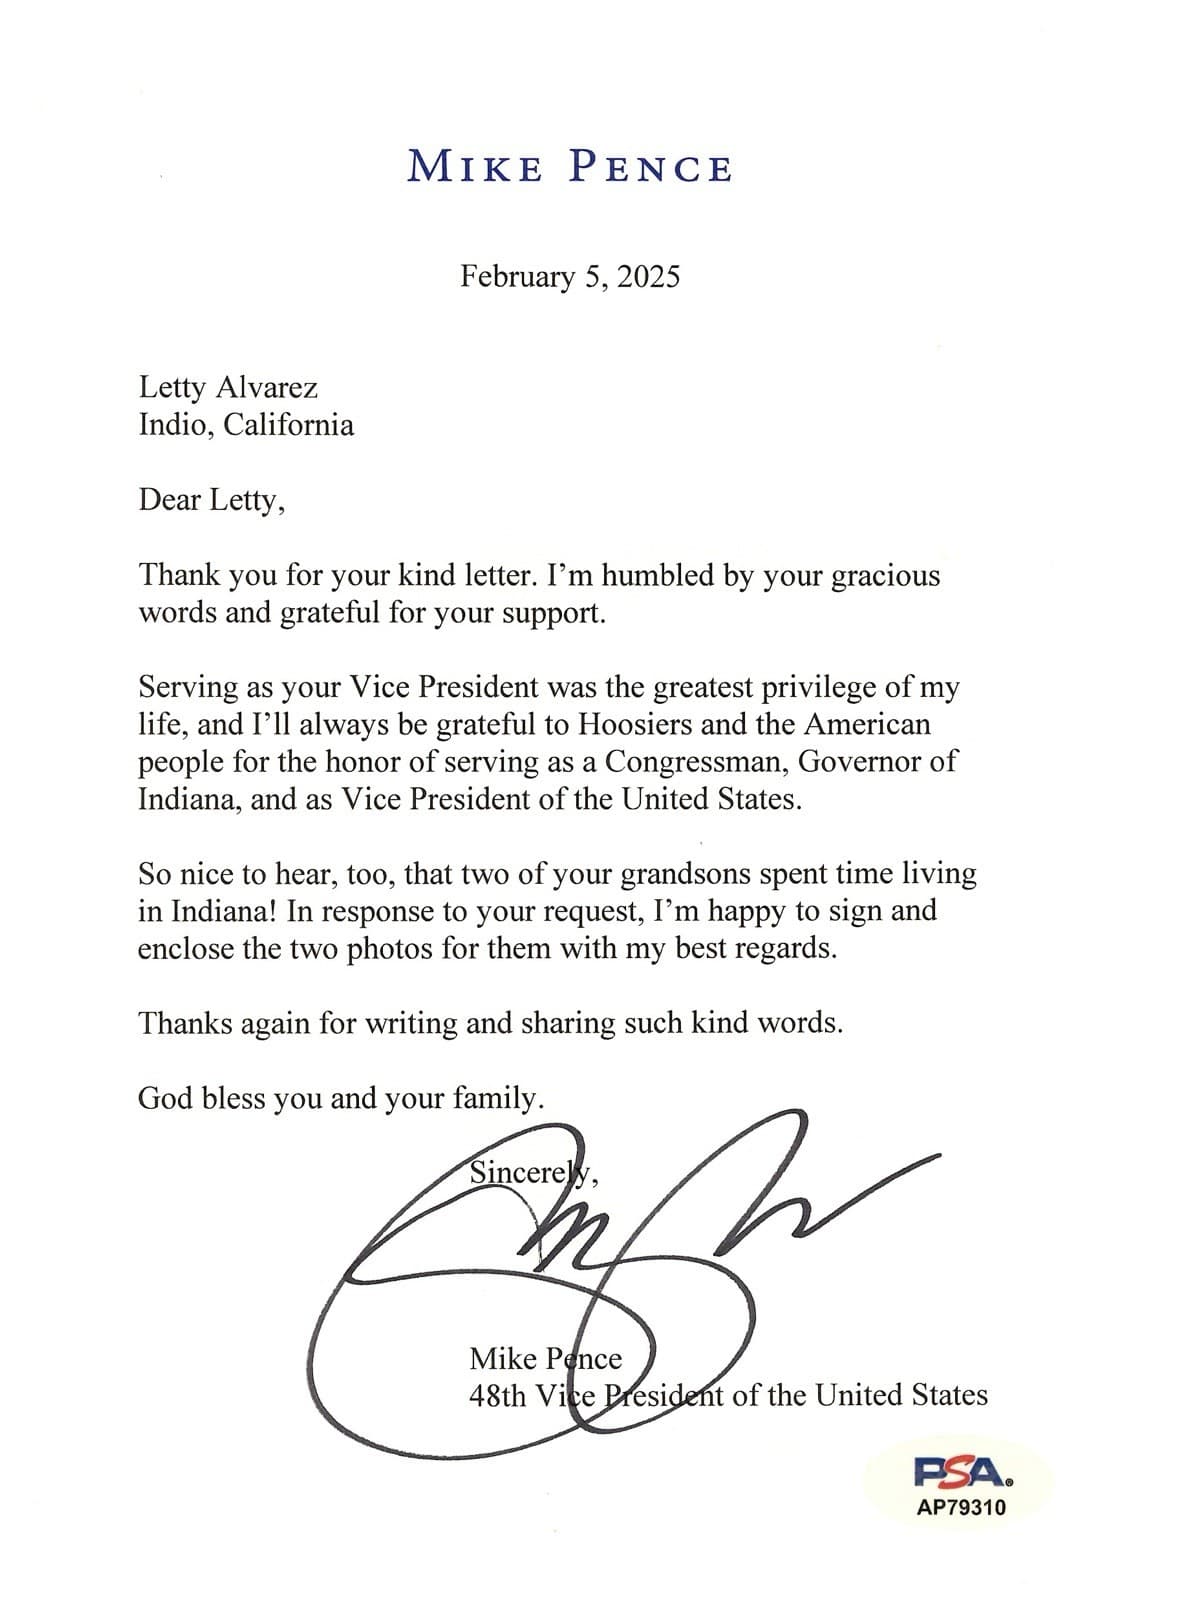 MIKE PENCE
February 5, 2025
Letty Alvarez
Indio, California
Dear Letty,
Thank you for your kind letter. I’m humbled by your gracious
words and grateful for your support.
Serving as your Vice President was the greatest privilege of my
life, and I’ll always be grateful to Hoosiers and the American
people for the honor of serving as a Congressman, Governor of
Indiana, and as Vice President of the United States.
So nice to hear, too, that two of your grandsons spent time living
in Indiana! In response to your request, I’m happy to sign and
enclose the two photos for them with my best regards.
Thanks again for writing and sharing such kind words.
God bless you and your family.
Sincerely,
Mike Pence
48th Vice President of the United States
PSA®
AP79310